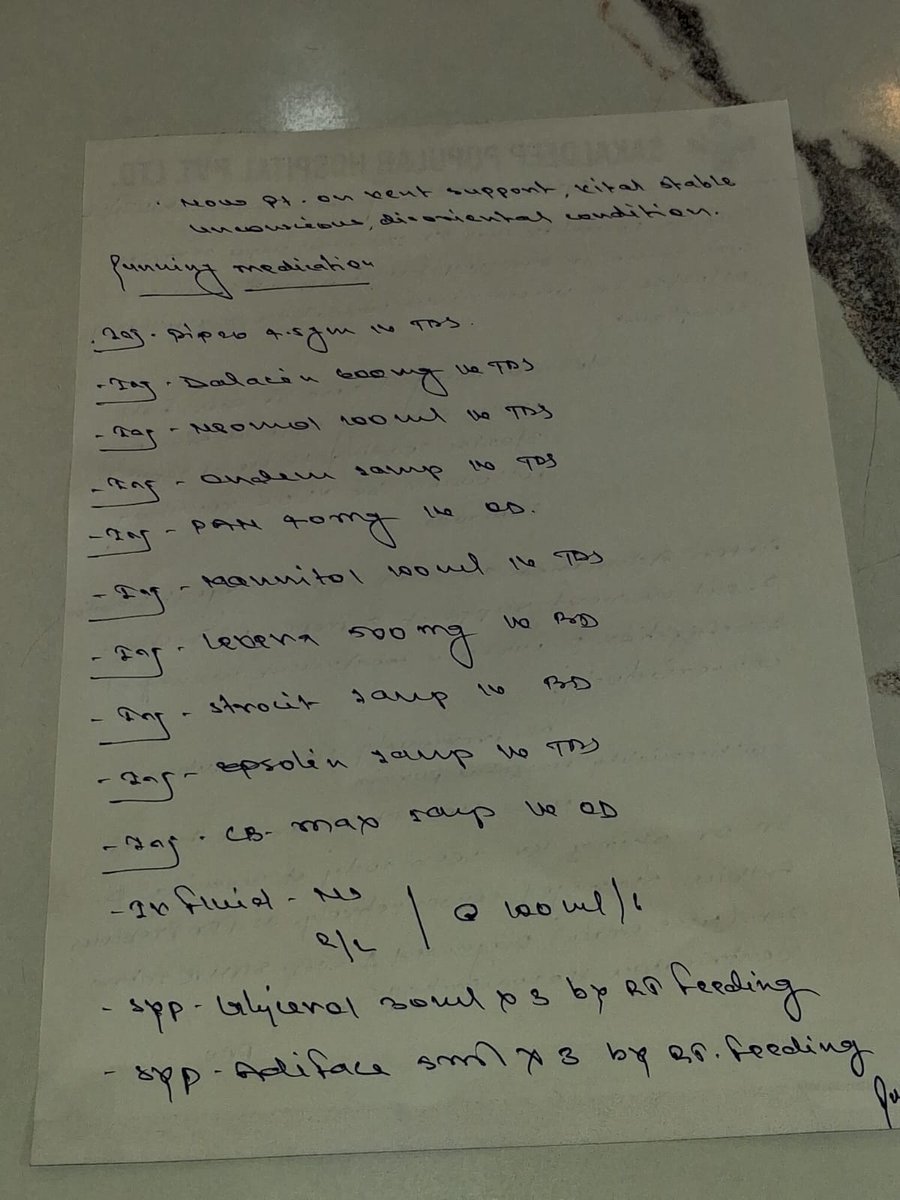 . Now pt. on vent support, vital stable
unconscious, disoriental condition.
Running medication
. Inj. pipzo 4.5gm IV TDS.
- Inj. Dalacin 600mg IV TDS
- Inj - Neomol 100ml IV TDS
- Inj - ondem 1amp IV TDS
- Inj - PAN 40mg IV OD.
- Inj - Mannitol 100ml IV TDS
- Inj. Levera 500mg IV BD
- Inj - strocit 1amp IV BD
- Inj - epsolin 1amp IV TDS
- Inj. CB-max 1amp IV OD
- IV fluid - NS
R/L @ 100ml/h
- syp - Glycerol 30ml x 3 by RT feeding
- syp - 5ml x 3 by RT. feeding